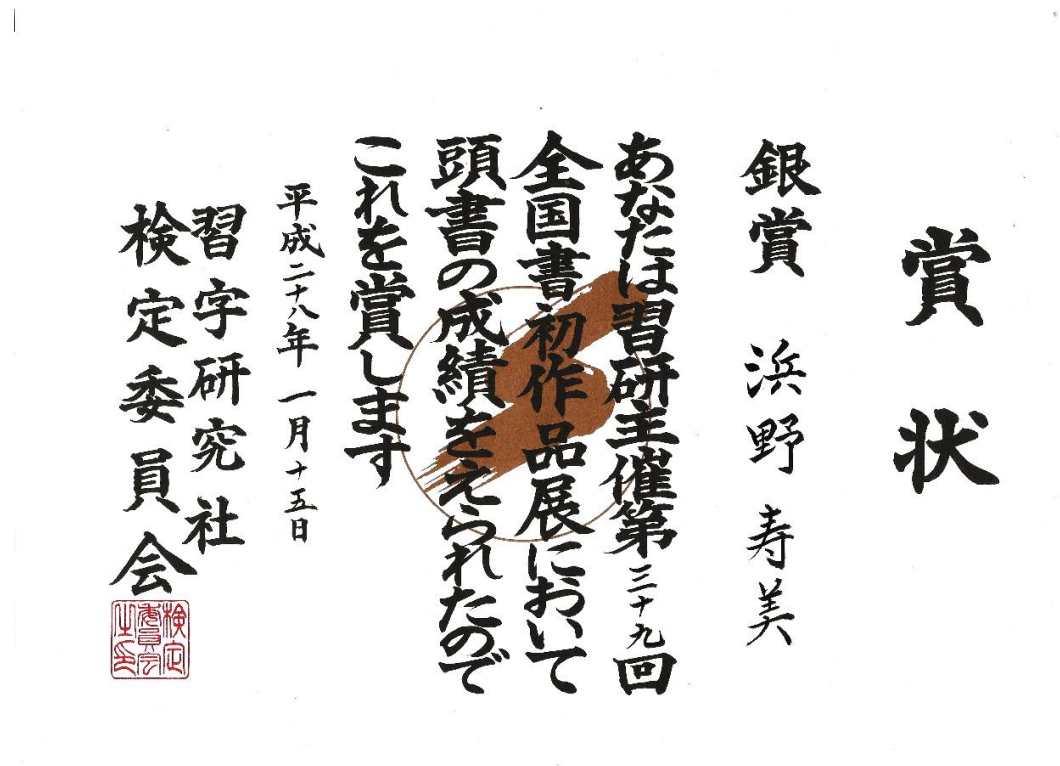 賞状
銀賞 浜野 寿美
あなたは習研主催第三十九回
全国書初作品展において
頭書の成績をえられたので
これを賞します
平成二十八年 一月十五日
習字研究社
検定委員会
検定
委員会
之印